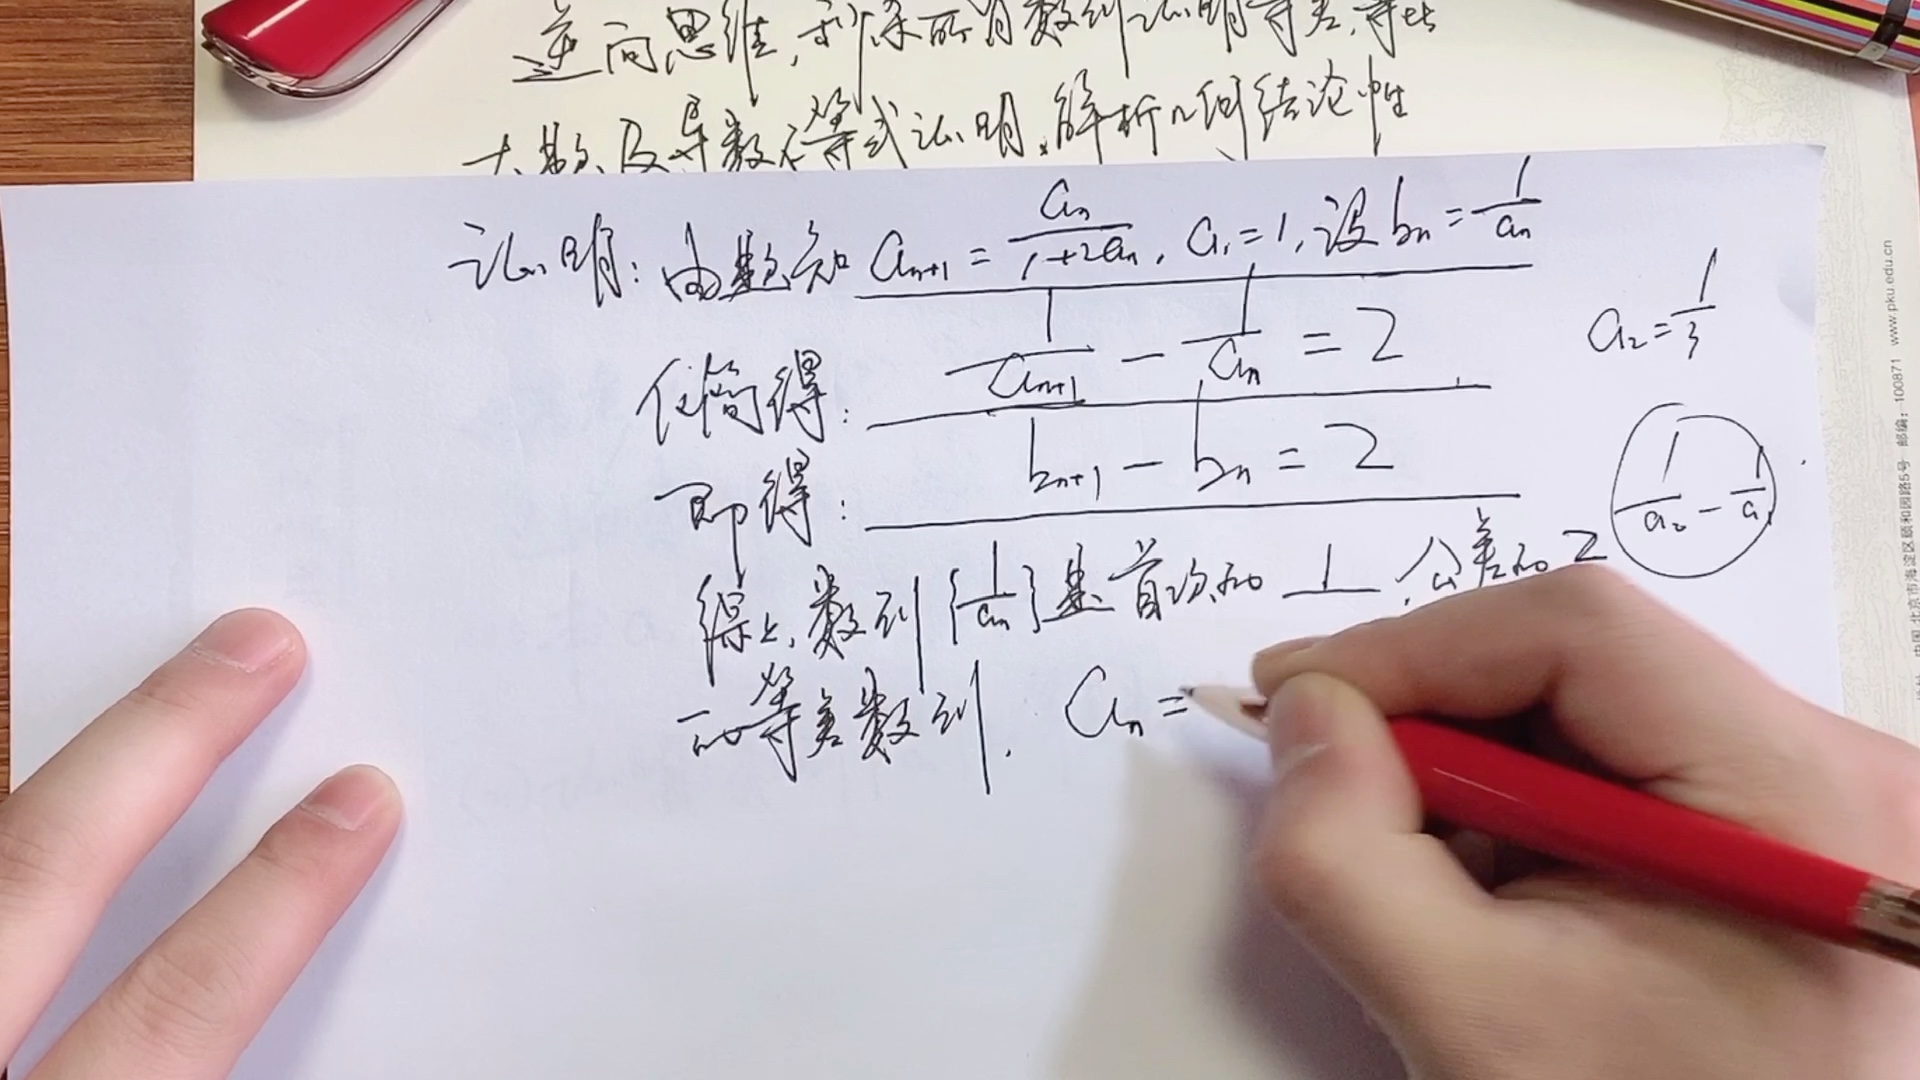 逆向思维,秒杀所有数列证明等差,等比
大题及导数不等式证明,解析几何结论性
证明:由题知 aₙ₊₁ = aₙ/(1+2aₙ), a₁=1, 设 bₙ = 1/aₙ
化简得: 1/aₙ₊₁ - 1/aₙ = 2
即得: bₙ₊₁ - bₙ = 2
综上,数列{1/aₙ}是首项为 1,公差为 2
的等差数列. aₙ =
a₂ = 1/3
1/a₂ - 1/a₁
北京市海淀区颐和园路5号 邮编:100871 www.pku.edu.cn